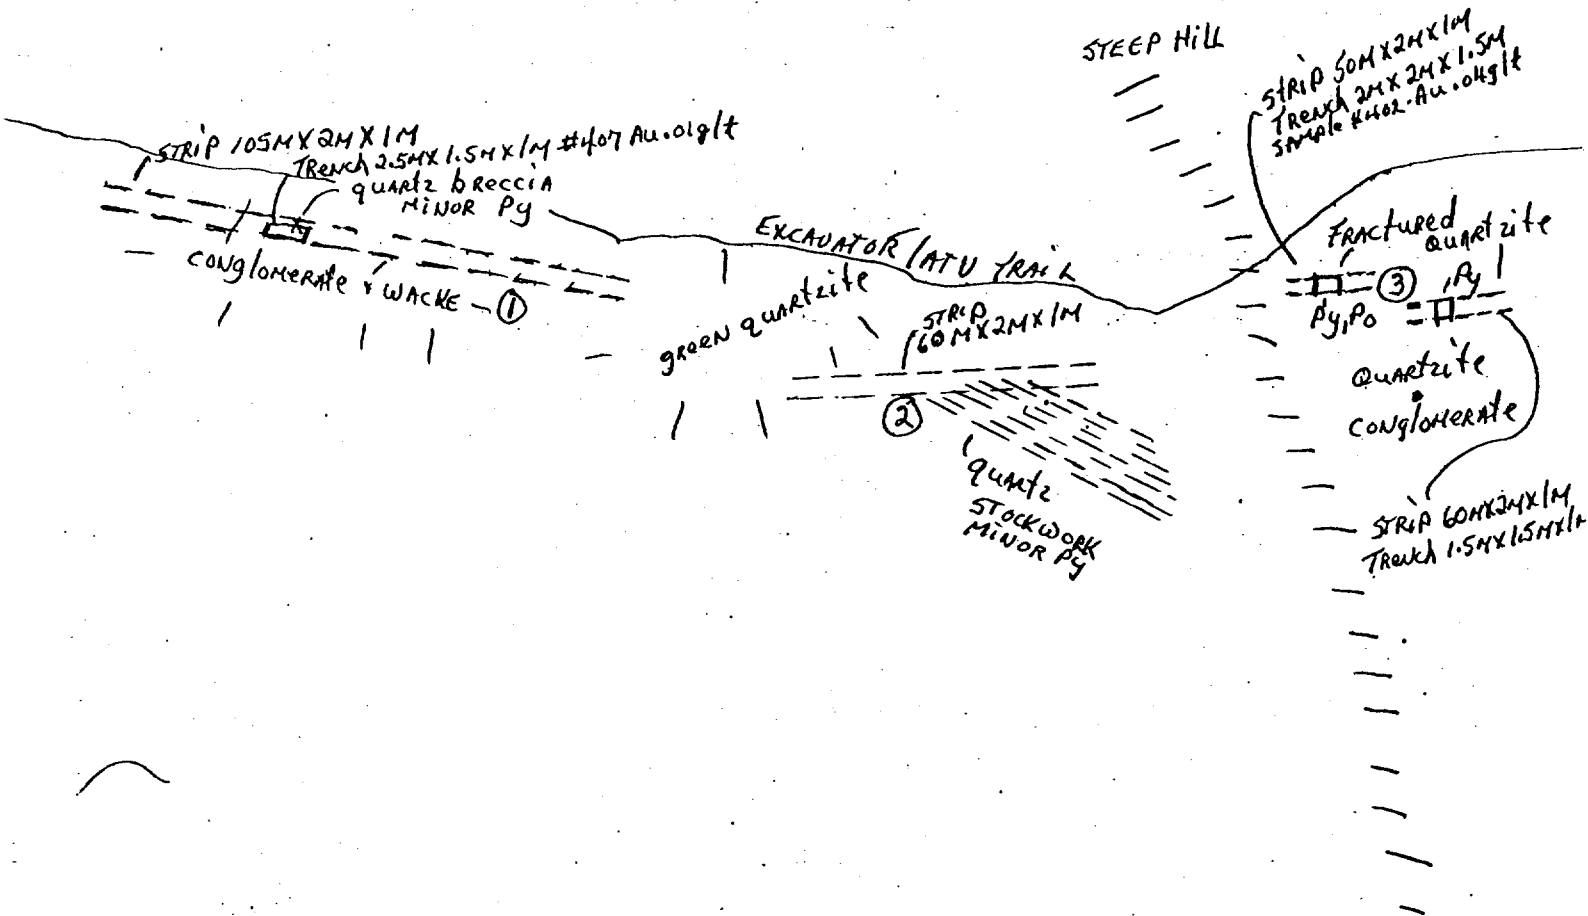 STEEP HILL
STRIP 50M X 2M X 1M
TRENCH 2M X 2M X 1.5M
SAMPLE #402 Au .04g/t
STRIP 105M X 2M X 1M
TRENCH 2.5M X 1.5M X 1M #407 Au .01g/t
quartz breccia
MINOR Py
CONGLOMERATE & WACKE - ①
EXCAVATOR/ATV TRAIL
green quartzite
STRIP
60M X 2M X 1M
②
quartz
STOCKWORK
MINOR Py
FRACTURED
QUARTZITE
③
Py
Py, Po
QUARTZITE
&
CONGLOMERATE
STRIP 60M X 2M X 1M
TRENCH 1.5M X 1.5M X 1M